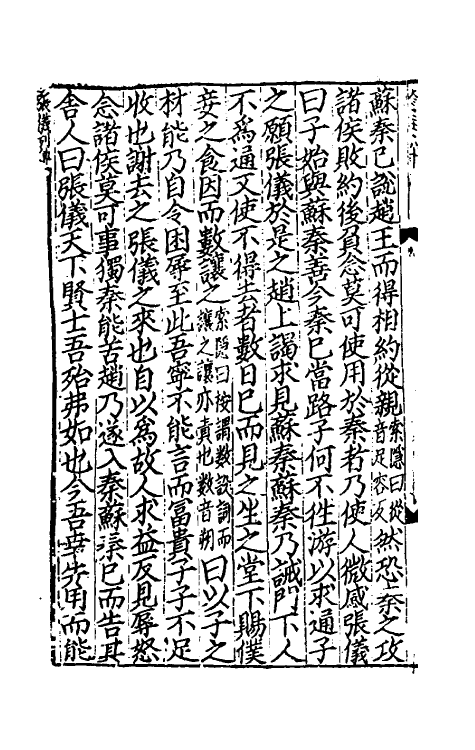 蘇秦已說趙王而得相約從親索隱曰從音足容反然恐秦之攻
諸侯敗約後負念莫可使用於秦者乃使人微感張儀
曰子始與蘇秦善今秦已當路子何不往游以求通子
之願張儀於是之趙上謁求見蘇秦蘇秦乃誡門下人
不為通又使不得去者數日已而見之坐之堂下賜僕
妾之食因而數讓之索隱曰按謂數設詞而讓之讓亦責也數音朔曰以子之
材能乃自令困辱至此吾寧不能言而富貴子子不足
收也謝去之張儀之來也自以為故人求益反見辱怒
念諸侯莫可事獨秦能苦趙乃遂入秦蘇秦已而告其
舍人曰張儀天下賢士吾殆弗如也今吾幸先用而能